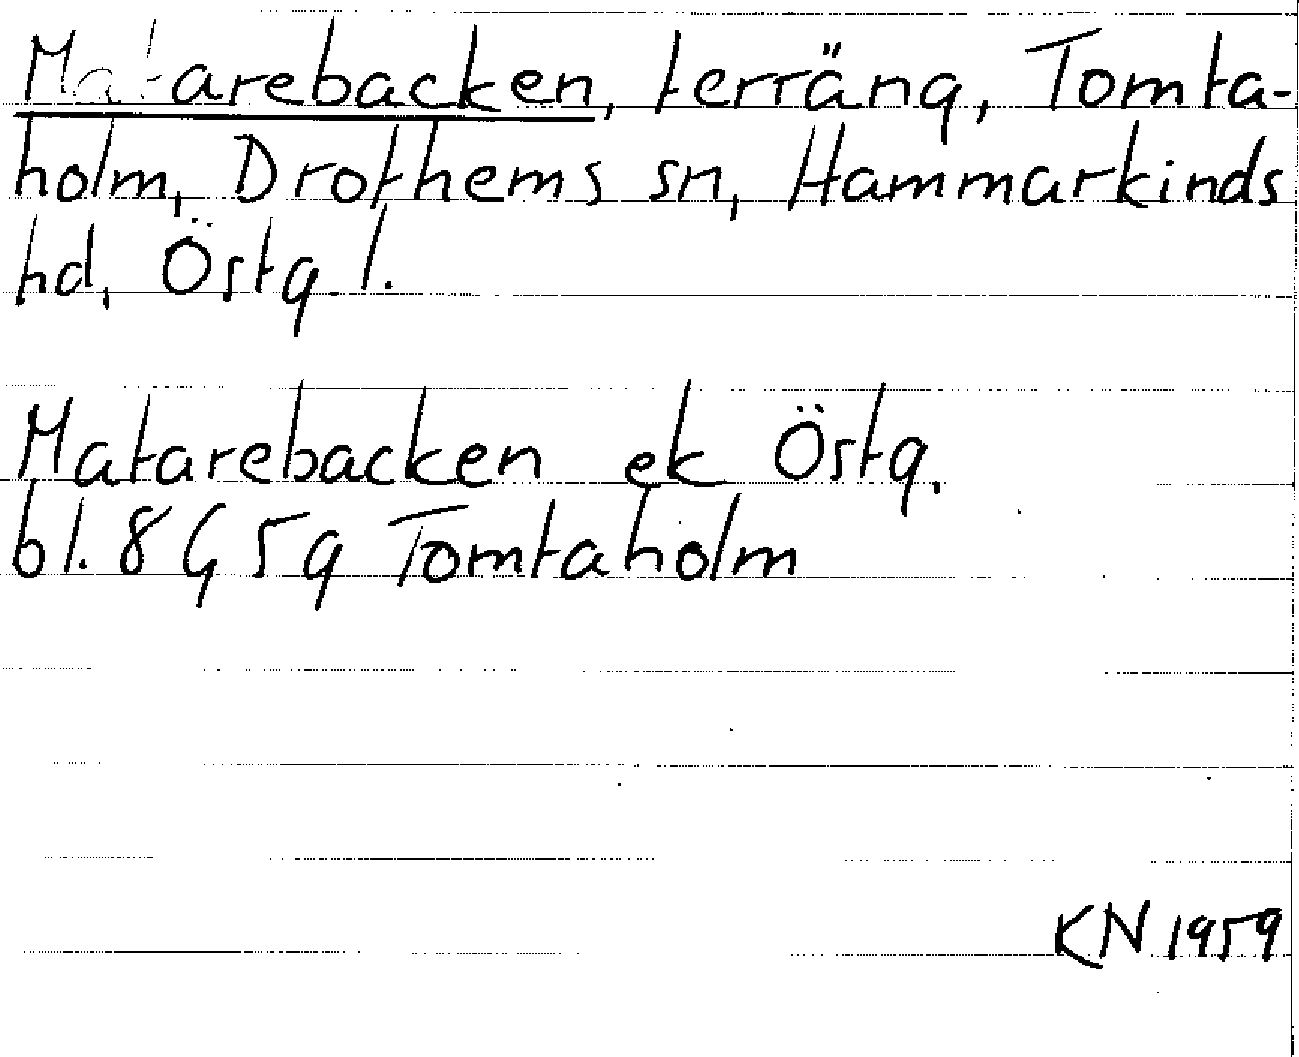 Matarebacken, terräng, Tomta-
holm, Drothems sn, Hammarkinds
hd, Östg. l.
Matarebacken ek Östg.
bl. 8 G 5 g Tomtaholm
KN 1959